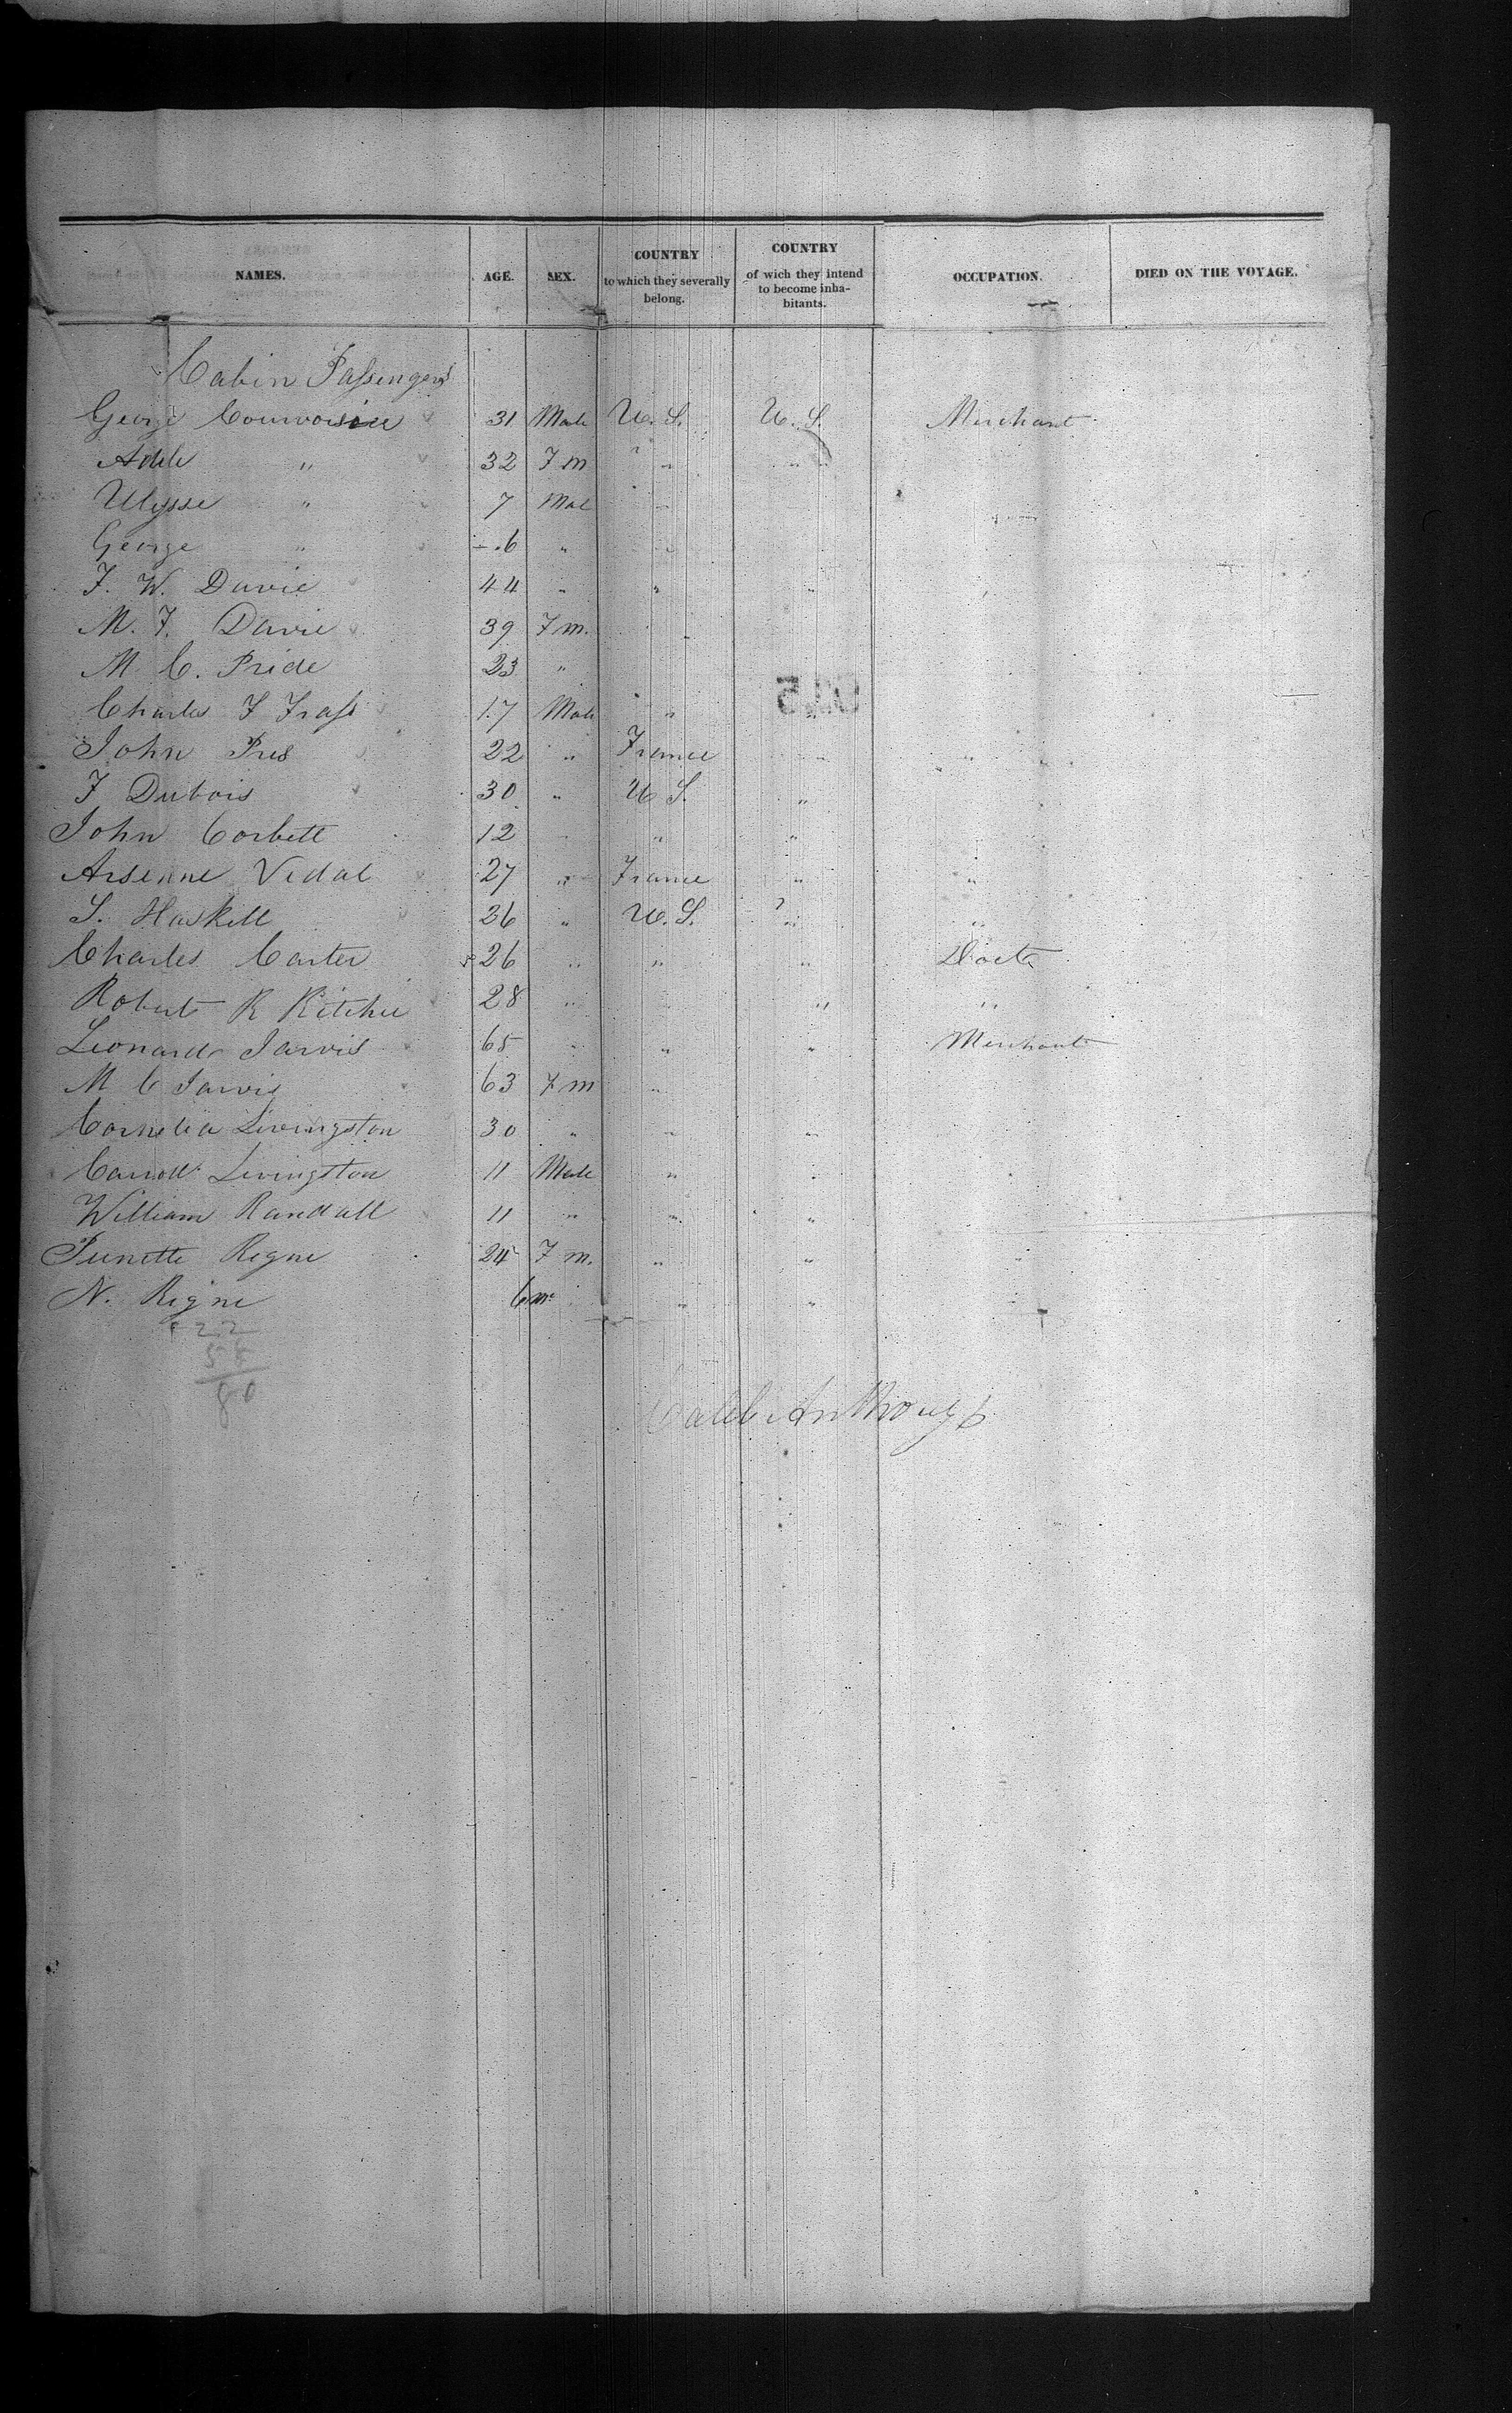 NAMES. AGE. SEX. COUNTRY to which they severally belong. COUNTRY of wich they intend to become inhabitants. OCCUPATION. DIED ON THE VOYAGE.
Cabin Passengers
George Courvoisie 31 Male U.S. U.S. Merchant
Adele " 32 Fm " "
Ulysse " 7 Mal "
George " 6 " "
F. W. Davie 44 " " "
M. F. Davie 39 Fm.
M. C. Pride 23 "
Charles F 17 Male " "
John Pres 22 " France " "
F Dubois 30 " U S. "
John Corbett 12 " " "
Arsenne Vidal 27 " France " "
S. Haskell 26 " U.S. " "
Charles Carter 26 " " " Doct
Robert R Ritchie 28 " " "
Leonard Jarvis 65 " " " Merchant
M C Jarvis 63 Fm "
Cornelia Livingston 30 " " "
Carroll Livingston 11 Male " "
William Randall 11 " " "
Regne 24 Fm. " "
N. Regne 6m " "
22
58
80
Caleb Anthony